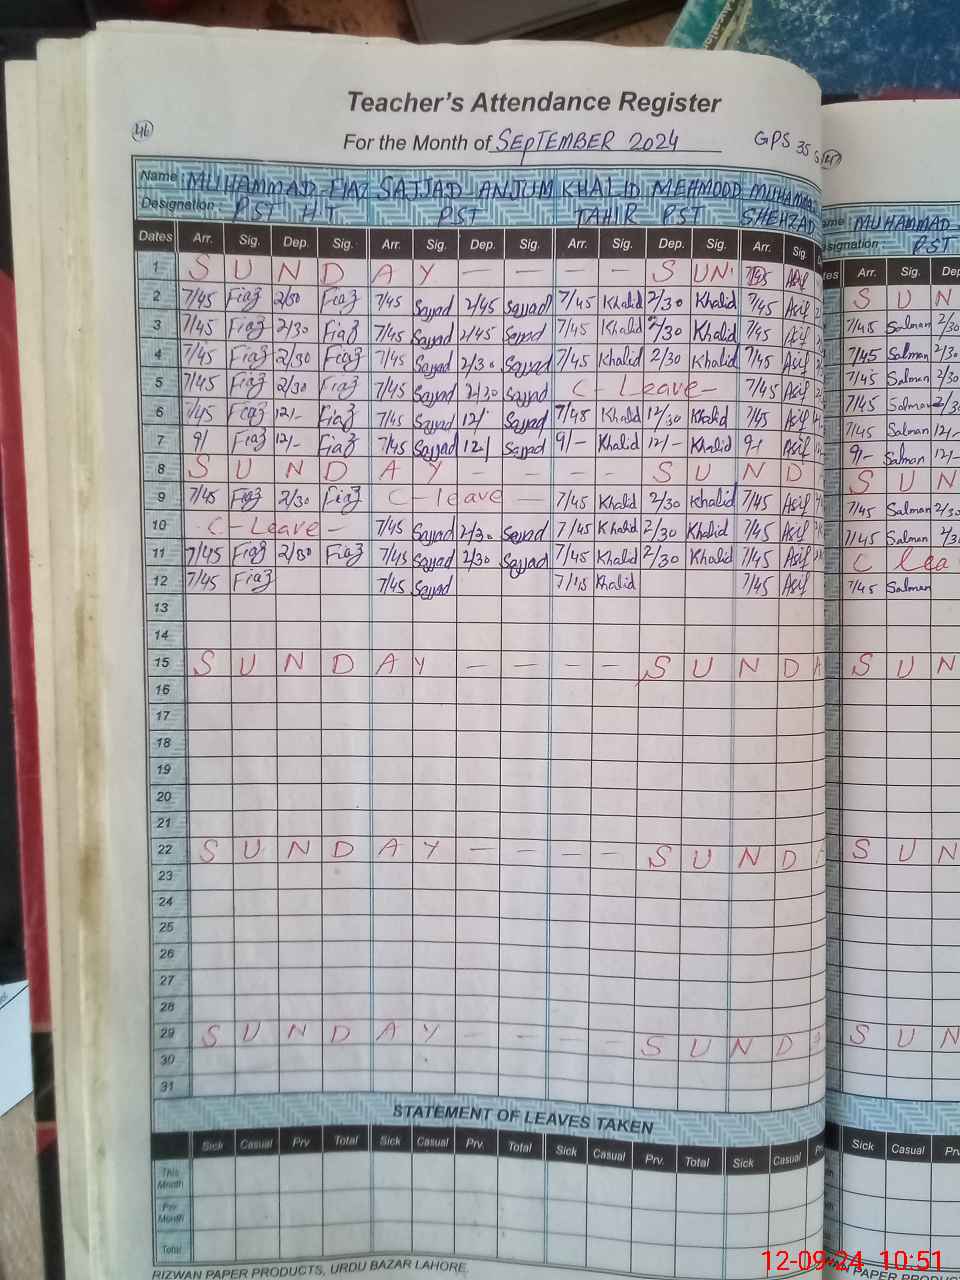 Teacher's Attendance Register
46
For the Month of SEPTEMBER 2024
GPS 35
Name MUHAMMAD FIAZ SAJJAD ANJUM KHALID MEHMOOD MUHAMMA
Designation PST HT PST TAHIR PST SHEHZAD
ame MUHAMMAD
signation PST
Dates Arr. Sig. Dep. Sig. Arr. Sig. Dep. Sig. Arr. Sig. Dep. Sig. Arr. Sig.
tes Arr. Sig. Dep
1 S U N D A Y — — — — S UN' Asif S U N
2 7/45 Fiaz 2/30 Fiaz 7/45 Sajjad 2/45 Sajjad 7/45 Khalid 2/30 Khalid 7/45 Asif 7/45 Salman 2/30
3 7/45 Fiaz 2/30 Fiaz 7/45 Sajjad 2/45 Sajjad 7/45 Khalid 2/30 Khalid 7/45 Asif 7/45 Salman 2/30
4 7/45 Fiaz 2/30 Fiaz 7/45 Sajjad 2/30 Sajjad 7/45 Khalid 2/30 Khalid 7/45 Asif 7/45 Salman 2/30
5 7/45 Fiaz 2/30 Fiaz 7/45 Sajjad 2/30 Sajjad C - Leave - 7/45 Asif 7/45 Salman 2/30
6 7/45 Fiaz 12/- Fiaz 7/45 Sajjad 12/ Sajjad 7/45 Khalid 12/30 Khalid 7/45 Asif 7/45 Salman 12/-
7 9/ Fiaz 12/- Fiaz 7/45 Sajjad 12/ Sajjad 9/- Khalid 12/- Khalid 9/ Asif 9/- Salman 12/-
8 S U N D A Y — — — — S U N D S U N
9 7/45 Fiaz 2/30 Fiaz C - leave — 7/45 Khalid 2/30 Khalid 7/45 Asif 7/45 Salman 2/30
10 C - Leave - 7/45 Sajjad 2/30 Sajjad 7/45 Khalid 2/30 Khalid 7/45 Asif 7/45 Salman
11 7/45 Fiaz 2/30 Fiaz 7/45 Sajjad 2/30 Sajjad 7/45 Khalid 2/30 Khalid 7/45 Asif C lea
12 7/45 Fiaz 7/45 Sajjad 7/45 Khalid 7/45 Asif 7/45 Salman
13
14
15 S U N D A Y — — — — S U N D A S U N
16
17
18
19
20
21
22 S U N D A Y — — — — S U N D S U N
23
24
25
26
27
28
29 S U N D A Y — — — — S U N D S U N
30
31
STATEMENT OF LEAVES TAKEN
Sick Casual Prv Total Sick Casual Prv. Total Sick Casual Prv. Total Sick Casual Sick Casual Prv
This Month
Pre Month
Total
RIZWAN PAPER PRODUCTS, URDU BAZAR LAHORE.
12-09-24 10:51